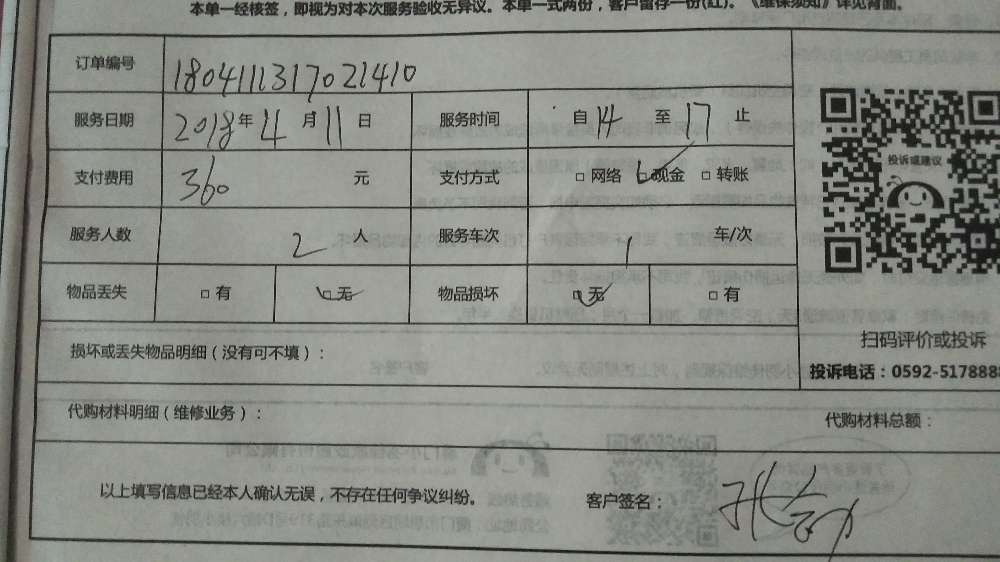 本单一经核签，即视为对本次服务验收无异议。本单一式两份，客户留存一份(红)。《维保须知》详见背面。
订单编号 1804111317021410
服务日期 2018年4月11日 服务时间 自14至17止
支付费用 360 元 支付方式 □网络 □现金 □转账
服务人数 2 人 服务车次 1 车/次
物品丢失 □有 □无 物品损坏 □无 □有
投诉或建议
扫码评价或投诉
损坏或丢失物品明细（没有可不填）：
投诉电话：0592-5178888
代购材料明细（维修业务）：
代购材料总额：
以上填写信息已经本人确认无误，不存在任何争议纠纷。
客户签名：